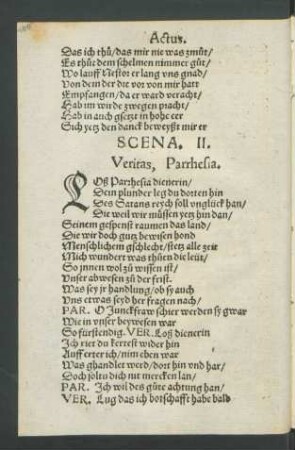 Actus.
Das ich thů/das mir nie was zmůt/
Es thůt dem schelmen nimmer gůt/
Wo lauff Nestor er lang vns gnad/
Von dem der dot vor von mir hatt
Empfangen/da er ward veracht/
Hab im wirde zwegen pracht/
Hab in auch gsetzt in hohe eer
Sich yetz den danck beweyßt mir er
SCENA. II.
Veritas, Parrhesia.
LOß Parrhesia dienerin/
Dein plunder leg du dorten hin
Des Satans reych soll vnglück han/
Die weil wir müssen yetz hin dan/
Seinem gespenst raumen das land/
Die wir doch gutz bewisen hond
Menschlichem gschlecht/stetz alle zeit
Mich wundert was thůen die leüt/
So jnnen wol zů wissen ist/
Vnser abwesen zů der frist.
Was sey jr handlung/ob sy auch
Vns etwas seyd her fragen nach/
PAR. O Junckfraw schier werden sy gwar
Wie in vnser beywesen war
So fürstendig. VER. Loß dienerin
Ich riet du kerrest wider hin
Auff erter ich/nim eben war
Was ghandlet werd/dort hin vnd har/
Doch soltu dich nit mercken lan/
PAR. Ich wil des gůte achtung han/
VER. Lug das ich botschafft habe bald